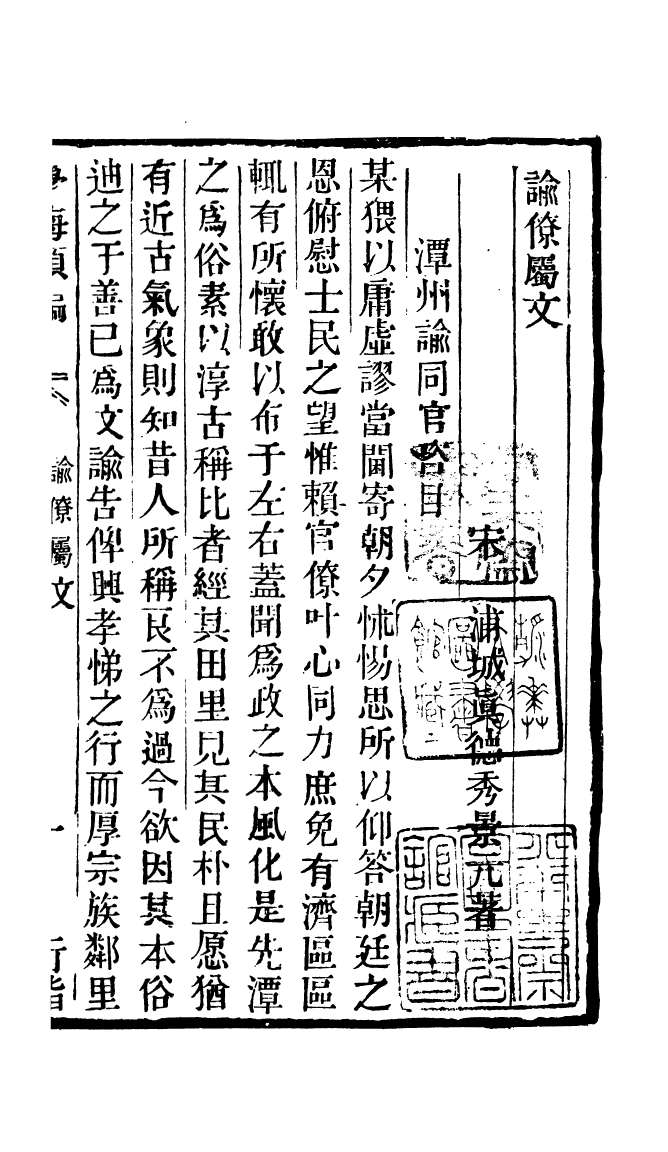 諭僚屬文
宋 浦城眞德秀景元著
潭州諭同官咨目
某猥以庸虛謬當閫寄朝夕怵惕思所以仰答朝廷之
恩俯慰士民之望惟賴官僚叶心同力庶免有濟區區
輒有所懷敢以布于左右蓋聞爲政之本風化是先潭
之爲俗素以淳古稱比者經其田里見其民朴且愿猶
有近古氣象則知昔人所稱良不爲過今欲因其本俗
迪之于善已爲文諭告俾興孝悌之行而厚宗族鄰里
學海類編
諭僚屬文
一